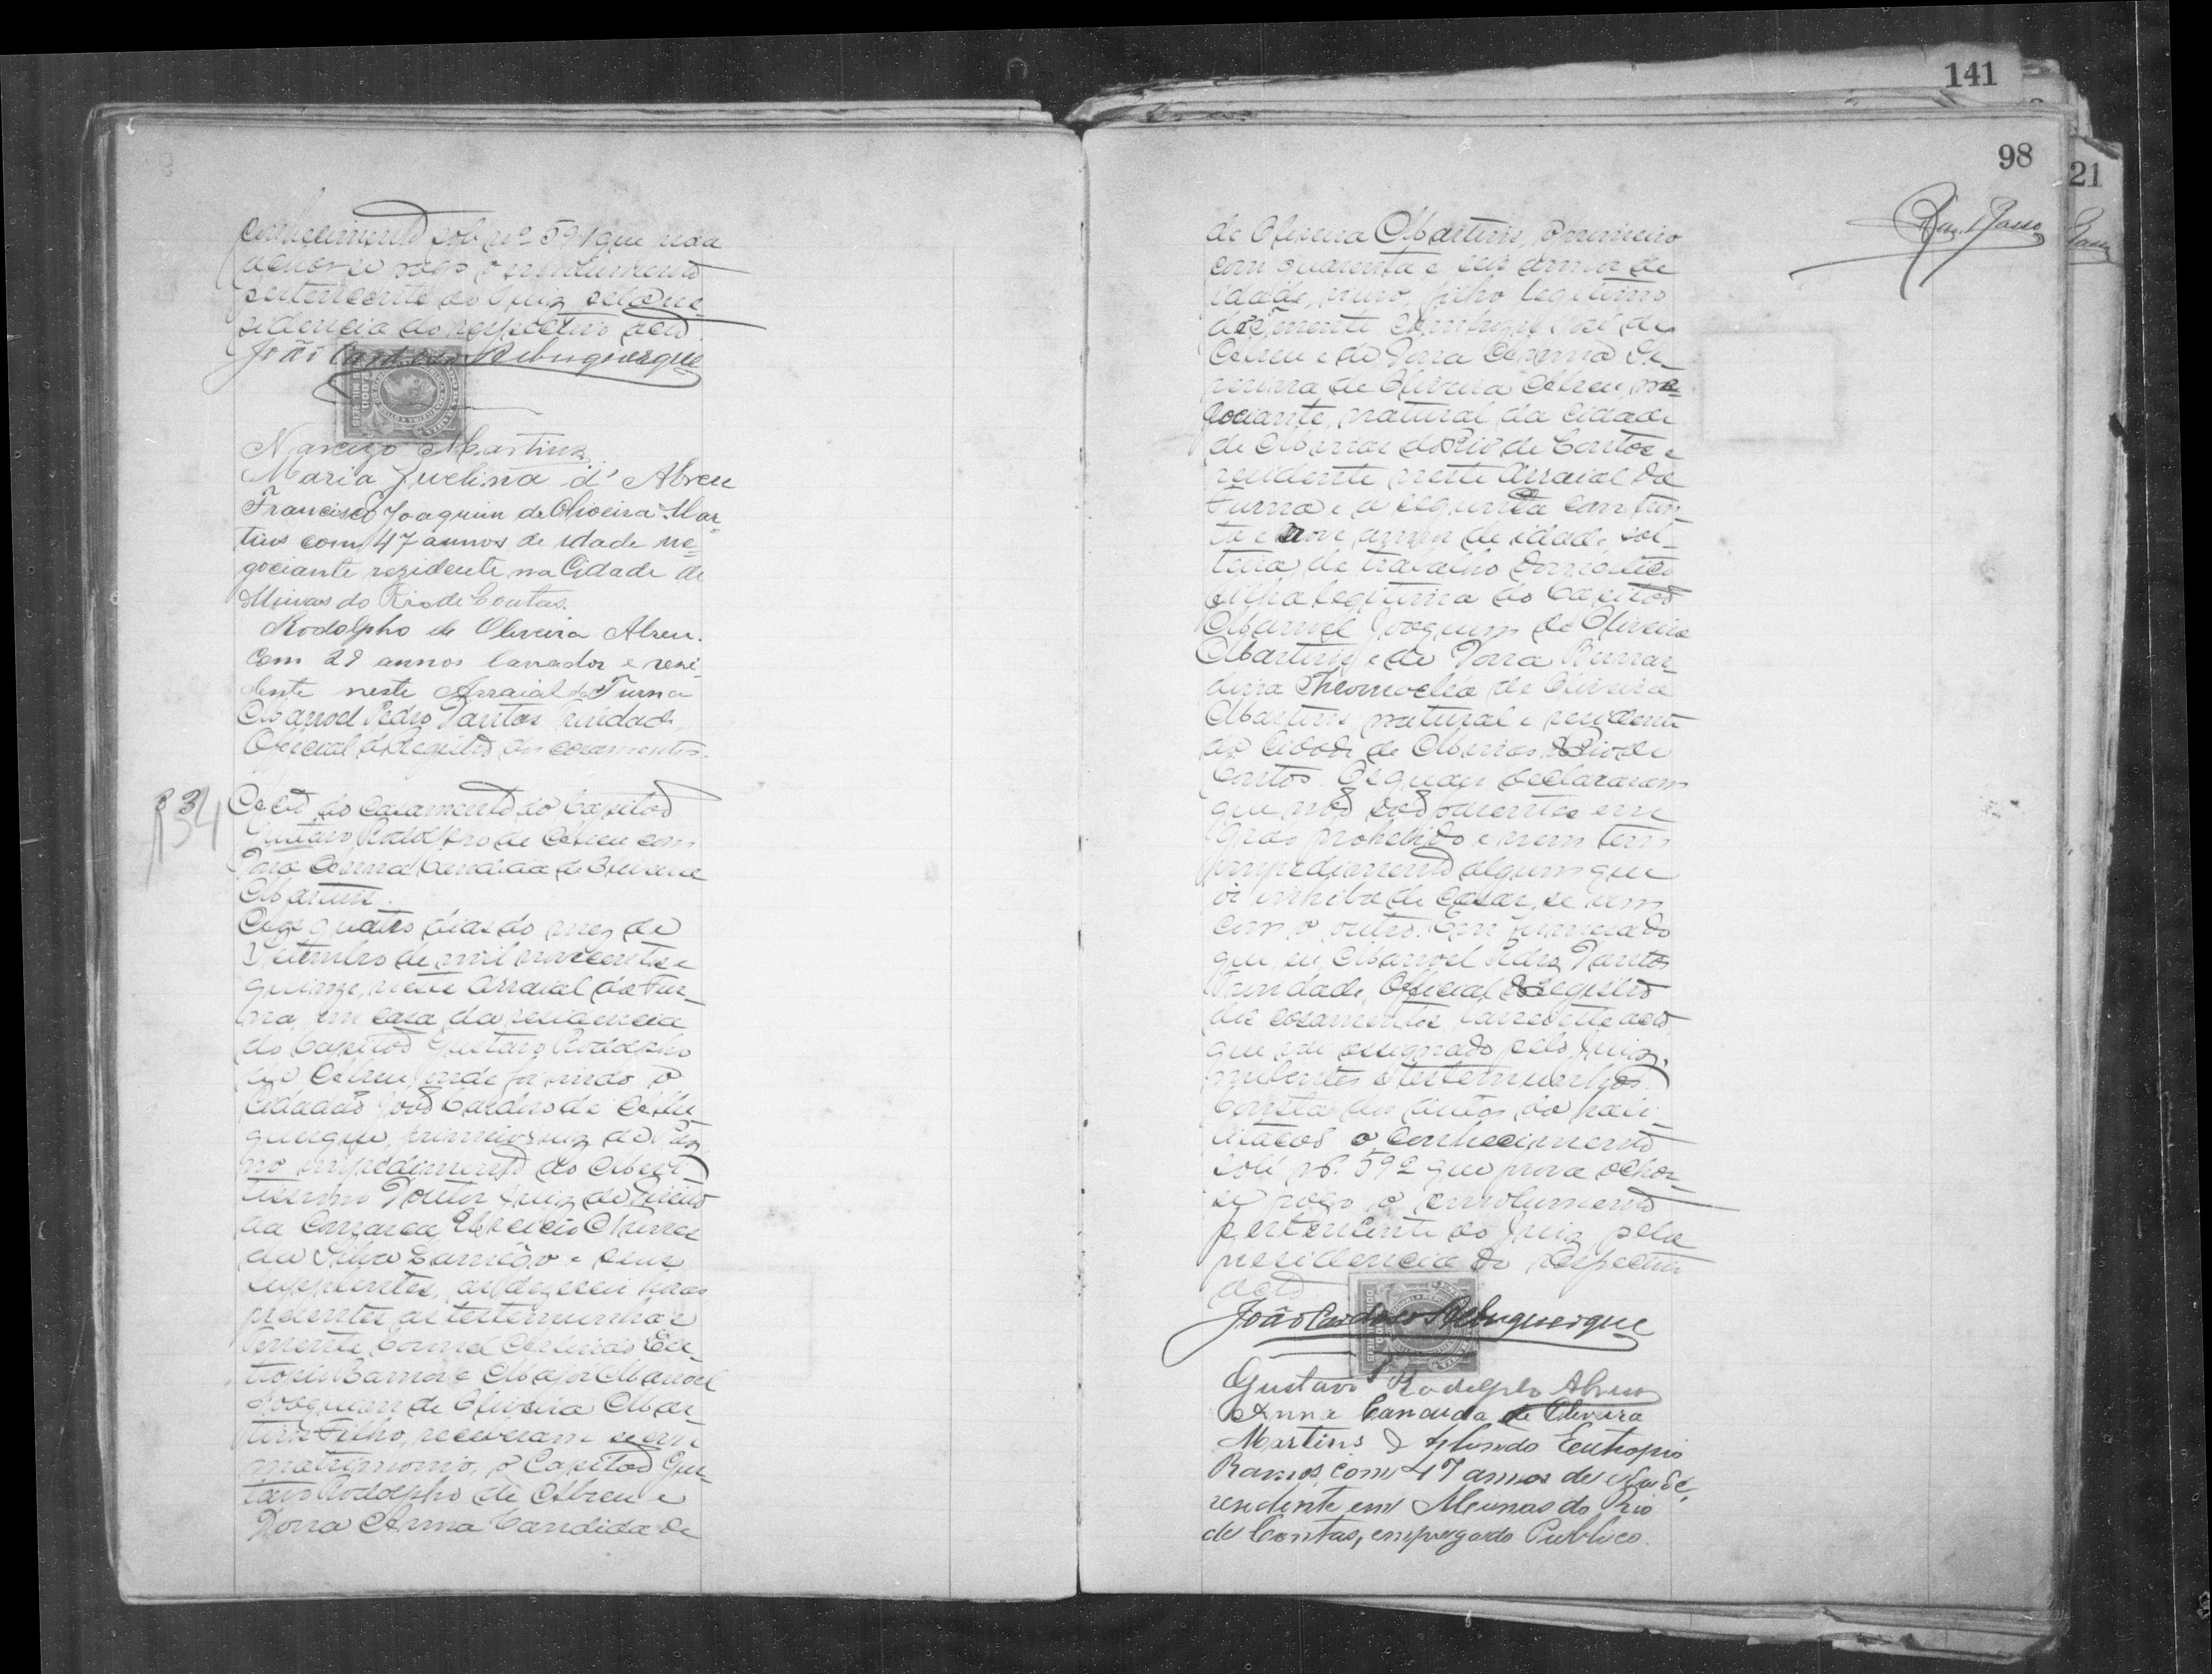 conhecimento sob nº 591 que
pago o emolumento
pertencente ao Juiz pela pre-
sidencia do respectivo acto.
João Cardoso Albuquerque
Narcizo Martins.
Maria Juvelina d' Abreu
Francisco Joaquim de Oliveira Mar-
tins com 47 annos de idade ne-
gociante rezidente na Cidade de
Minas do Rio de Contas.
Rodolpho de Oliveira Abreu.
Com 29 annos lavrador e resi-
dente neste Arraial da Furna
Manoel Pedro Dantas Trindade
Official do Registro dos casamentos.
34
Acto do casamento do Capitão
Gustavo Rodolpho de Abreu com
Dona Anna Candida de Oliveira
Martins.
Aos quatro dias do mez de
Setembro de mil novecentos e
quinze, neste Arraial da Fur-
na, em casa da residencia
do Capitão Gustavo Rodolpho
de Abreu, onde foi vindo o
Cidadão João Cardoso de Albu-
querque, primeiro juiz de Paz
no impedimento do
Doutor Juiz de Direito
da Comarca,
da Silva e seus
supplentes, as dez horas
presentes as testemunhas
Tenente Coronel Eu-
tropio Ramos e Major Manoel
Joaquim de Oliveira Mar-
tins Filho, receberam se em
matrimonio, o Capitão Gus-
tavo Rodolpho de Abreu e
Dona Anna Candida de
141
98
21
de Oliveira Martins, o primeiro
com quarenta e seis annos de
idade, viuvo, filho legitimo
do Tenente Coronel José de
Abreu e de Dona
de Oliveira Abreu, ne-
gociante, natural da Cidade
de Minas do Rio de Contas e
residente neste Arraial da
Furna e a segunda com trin-
ta e nove annos de idade, sol-
teira, de trabalho domestico
filha legitima do Capitão
Manoel Joaquim de Oliveira
Martins e de Dona Bernar-
dina de Oliveira
Martins natural e residente
da Cidade de Minas do Rio de
Contas. Os quaes declararam
que não são parentes em
grao prohebido e nem tem
impedimento algum que
os inhiba de casar-se um
com o outro. Em firmeza do
que, eu Manoel Pedro Dantas
Trindade, Official do Registro
dos casamentos, lavrei este acto
que vai assignado pelo Juiz,
nubentes e testemunhas.
Consta dos autos da habi-
litação o conhecimento
sob nº. 592 que prova achar-
se pago o emolumento
pertencente ao Juiz pela
presidencia do respectivo
acto.
João Cardoso Albuquerque
Gustavo Rodolpho Abreu
Anna Candida de Oliveira
Martins Eutropio
Ramos, com 47 annos de idade,
residente em Minas do Rio
de Contas, empregado Publico.